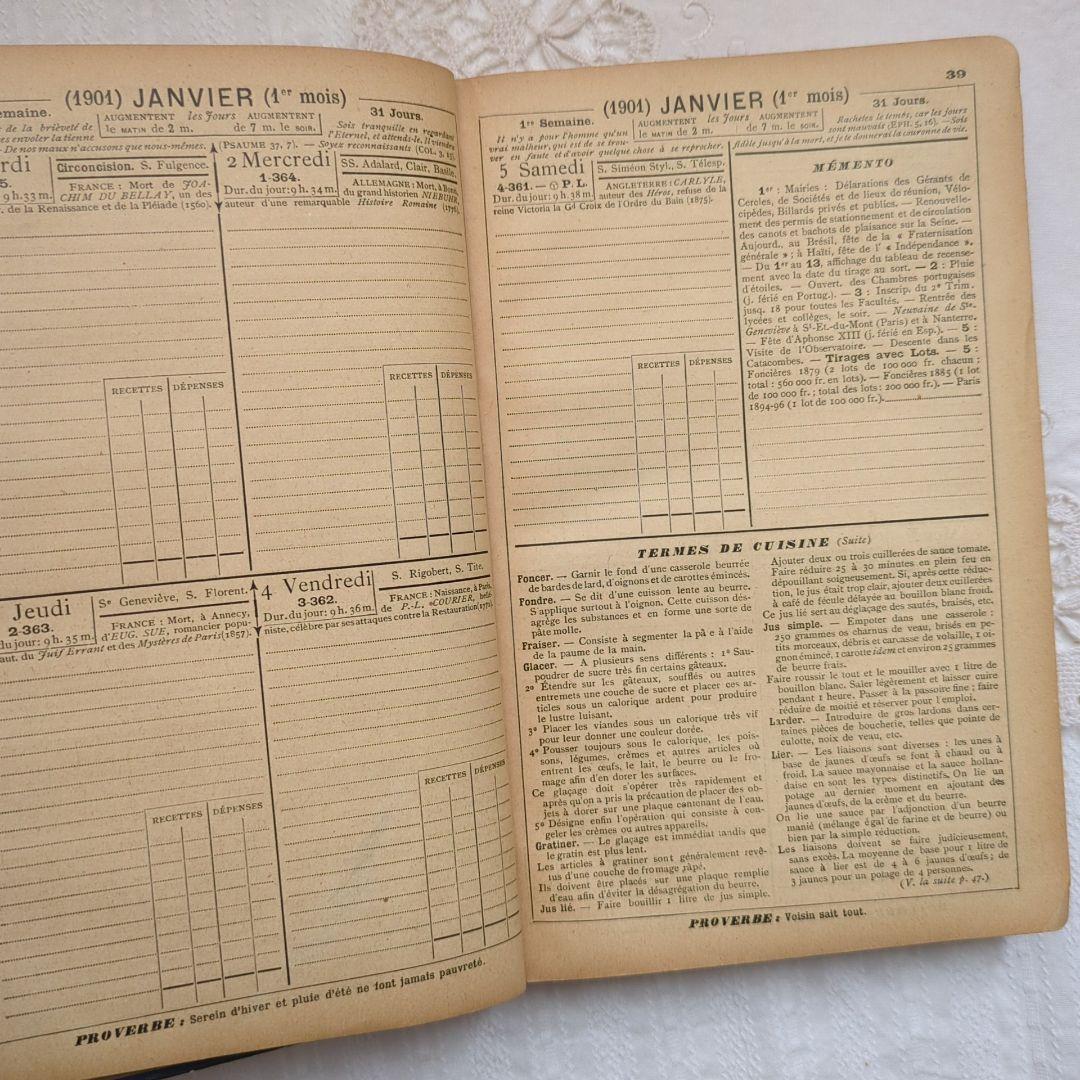 emaine.
(1901) JANVIER (1er mois)
31 Jours.
r de la brièveté de
es envoler la tienne
- De nos maux n'accusons que nous-mêmes.
AUGMENTENT les Jours AUGMENTENT
le MATIN de 2 m. de 7 m. le SOIR.
Sois tranquille en regardant
l'Eternel, et attends-le. Il viendra
(PSAUME 37, 7). — Soyez reconnaissants (COL. 3, 15).
rdi
5.
9 h. 33 m.
Circoncision. S. Fulgence.
FRANCE : Mort de JOA-
CHIM DU BELLAY, un des
. de la Renaissance et de la Pléiade (1560).
RECETTES DÉPENSES
2 Mercredi
1-364.
Dur. du jour: 9 h. 34 m.
SS. Adalard, Clair, Basile.
ALLEMAGNE : Mort, à Bonn,
du grand historien NIEBUHR,
auteur d'une remarquable Histoire Romaine (1776).
RECETTES DÉPENSES
Jeudi
2-363.
du jour: 9 h. 35 m.
Se Geneviève, S. Florent.
FRANCE : Mort, à Annecy,
d'EUG. SUE, romancier popu-
aut. du Juif Errant et des Mystères de Paris (1857).
RECETTES DÉPENSES
4 Vendredi
3-362.
Dur. du jour: 9 h. 36 m.
S. Rigobert, S. Tite.
FRANCE : Naissance, à Paris,
de P.-L. COURIER,
niste, célèbre par ses attaques contre la Restauration
RECETTES DÉPENSES
PROVERBE : Serein d'hiver et pluie d'été ne font jamais pauvreté.
39
1re Semaine.
(1901) JANVIER (1er mois)
31 Jours.
Il n'y a pour l'homme qu'un
vrai malheur, qui est de se trou-
ver en faute et d'avoir quelque chose à se reprocher.
AUGMENTENT les Jours AUGMENTENT
le MATIN de 2 m. de 7 m. le SOIR.
Rachetez le temps, car les jours
sont mauvais (EPH. 5, 16). — Sois
fidèle jusqu'à la mort, et je te donnerai la couronne de vie.
5 Samedi
4-361. — P. L.
Dur. du jour: 9 h. 38 m.
S. Siméon Styl., S. Télesp.
ANGLETERRE : CARLYLE,
auteur des Héros, refuse de la
reine Victoria la Gd Croix de l'Ordre du Bain (1875).
RECETTES DÉPENSES
MÉMENTO
1er : Mairies : Délarations des Gérants de
Cercles, de Sociétés et de lieux de réunion, Vélo-
cipèdes, Billards privés et publics. — Renouvelle-
ment des permis de stationnement et de circulation
des canots et bachots de plaisance sur la Seine. —
Aujourd., au Brésil, fête de la « Fraternisation
générale » ; à Haïti, fête de l' « Indépendance ».
— Du 1er au 13, affichage du tableau de recense-
ment avec la date du tirage au sort. — 2 : Pluie
d'étoiles. — Ouvert. des Chambres portugaises
(j. férié en Portug.). — 3 : Inscrip. du 2e Trim.
jusq. 18 pour toutes les Facultés. — Rentrée des
lycées et collèges, le soir. — Neuvaine de Ste-
Geneviève à St-Et.-du-Mont (Paris) et à Nanterre.
— Fête d'Aphonse XIII (j. férié en Esp.). — 5 :
Visite de l'Observatoire. — Descente dans les
Catacombes. — Tirages avec Lots. — 5 :
Foncières 1879 (2 lots de 100 000 fr. chacun ;
total : 560 000 fr. en lots). — Foncières 1885 (1 lot
de 100 000 fr. ; total des lots : 200 000 fr.). — Paris
1894-96 (1 lot de 100 000 fr.).
TERMES DE CUISINE (Suite)
Foncer. — Garnir le fond d'une casserole beurrée
de bardes de lard, d'oignons et de carottes émincés.
Fondre. — Se dit d'une cuisson lente au beurre.
S'applique surtout à l'oignon. Cette cuisson dés-
agrège les substances et en forme une sorte de
pâte molle.
Fraiser. — Consiste à segmenter la pâ e à l'aide
de la paume de la main.
Glacer. — A plusieurs sens différents : 1° Sau-
poudrer de sucre très fin certains gâteaux.
2° Étendre sur les gâteaux, soufflés ou autres
entremets une couche de sucre et placer ces ar-
ticles sous un calorique ardent pour produire
le lustre luisant.
3° Placer les viandes sous un calorique très vif
pour leur donner une couleur dorée.
4° Pousser toujours sous le calorique, les pois-
sons, légumes, crèmes et autres articles où
entrent les œufs, le lait, le beurre ou le fro-
mage afin d'en dorer les surfaces.
Ce glaçage doit s'opérer très rapidement et
après qu'on a pris la précaution de placer des ob-
jets à dorer sur une plaque contenant de l'eau.
5° Désigne enfin l'opération qui consiste à con-
geler les crèmes ou autres appareils.
Gratiner. — Le glaçage est immédiat tandis que
le gratin est plus lent.
Les articles à gratiner sont généralement revê-
tus d'une couche de fromage râpé.
Ils doivent être placés sur une plaque remplie
d'eau afin d'éviter la désagrégation du beurre.
Jus lié. — Faire bouillir 1 litre de jus simple.
Ajouter deux ou trois cuillerées de sauce tomate.
Faire réduire 25 à 30 minutes en plein feu en
dépouillant soigneusement. Si, après cette réduc-
tion, le jus était trop clair, ajouter deux cuillerées
à café de fécule délayée au bouillon blanc froid.
Ce jus lié sert au déglaçage des sautés, braisés, etc.
Jus simple. — Empoter dans une casserole :
250 grammes os charnus de veau, brisés en pe-
tits morceaux, débris et carcasse de volaille, 1 oi-
gnon émincé, 1 carotte idem et environ 25 grammes
de beurre frais.
Faire roussir le tout et le mouiller avec 1 litre de
bouillon blanc. Saler légèrement et laisser cuire
pendant 1 heure. Passer à la passoire fine ; faire
réduire de moitié et réserver pour l'emploi.
Larder. — Introduire de gros lardons dans cer-
taines pièces de boucherie, telles que pointe de
culotte, noix de veau, etc.
Lier. — Les liaisons sont diverses : les unes à
base de jaunes d'œufs se font à chaud ou à
froid. La sauce mayonnaise et la sauce hollan-
daise en sont les types distinctifs. On lie un
potage au dernier moment en ajoutant des
jaunes d'œufs, de la crème et du beurre.
On lie une sauce par l'adjonction d'un beurre
manié (mélange égal de farine et de beurre) ou
bien par la simple réduction.
Les liaisons doivent se faire judicieusement,
sans excès. La moyenne de base pour 1 litre de
sauce à lier est de 4 à 6 jaunes d'œufs ; de
3 jaunes pour un potage de 4 personnes.
(V. la suite p. 47.)
PROVERBE : Voisin sait tout.